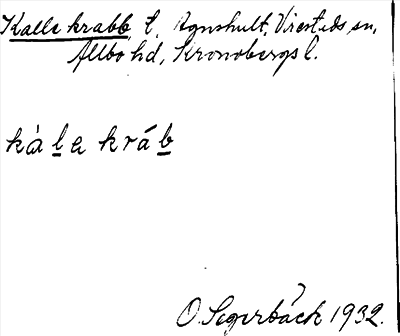 Kalle krabb, t. Agnshult, Virestads sn,
Allbo hd, Kronobergs l.
kàḻe kráḇ
O. Segerbäck 1932.